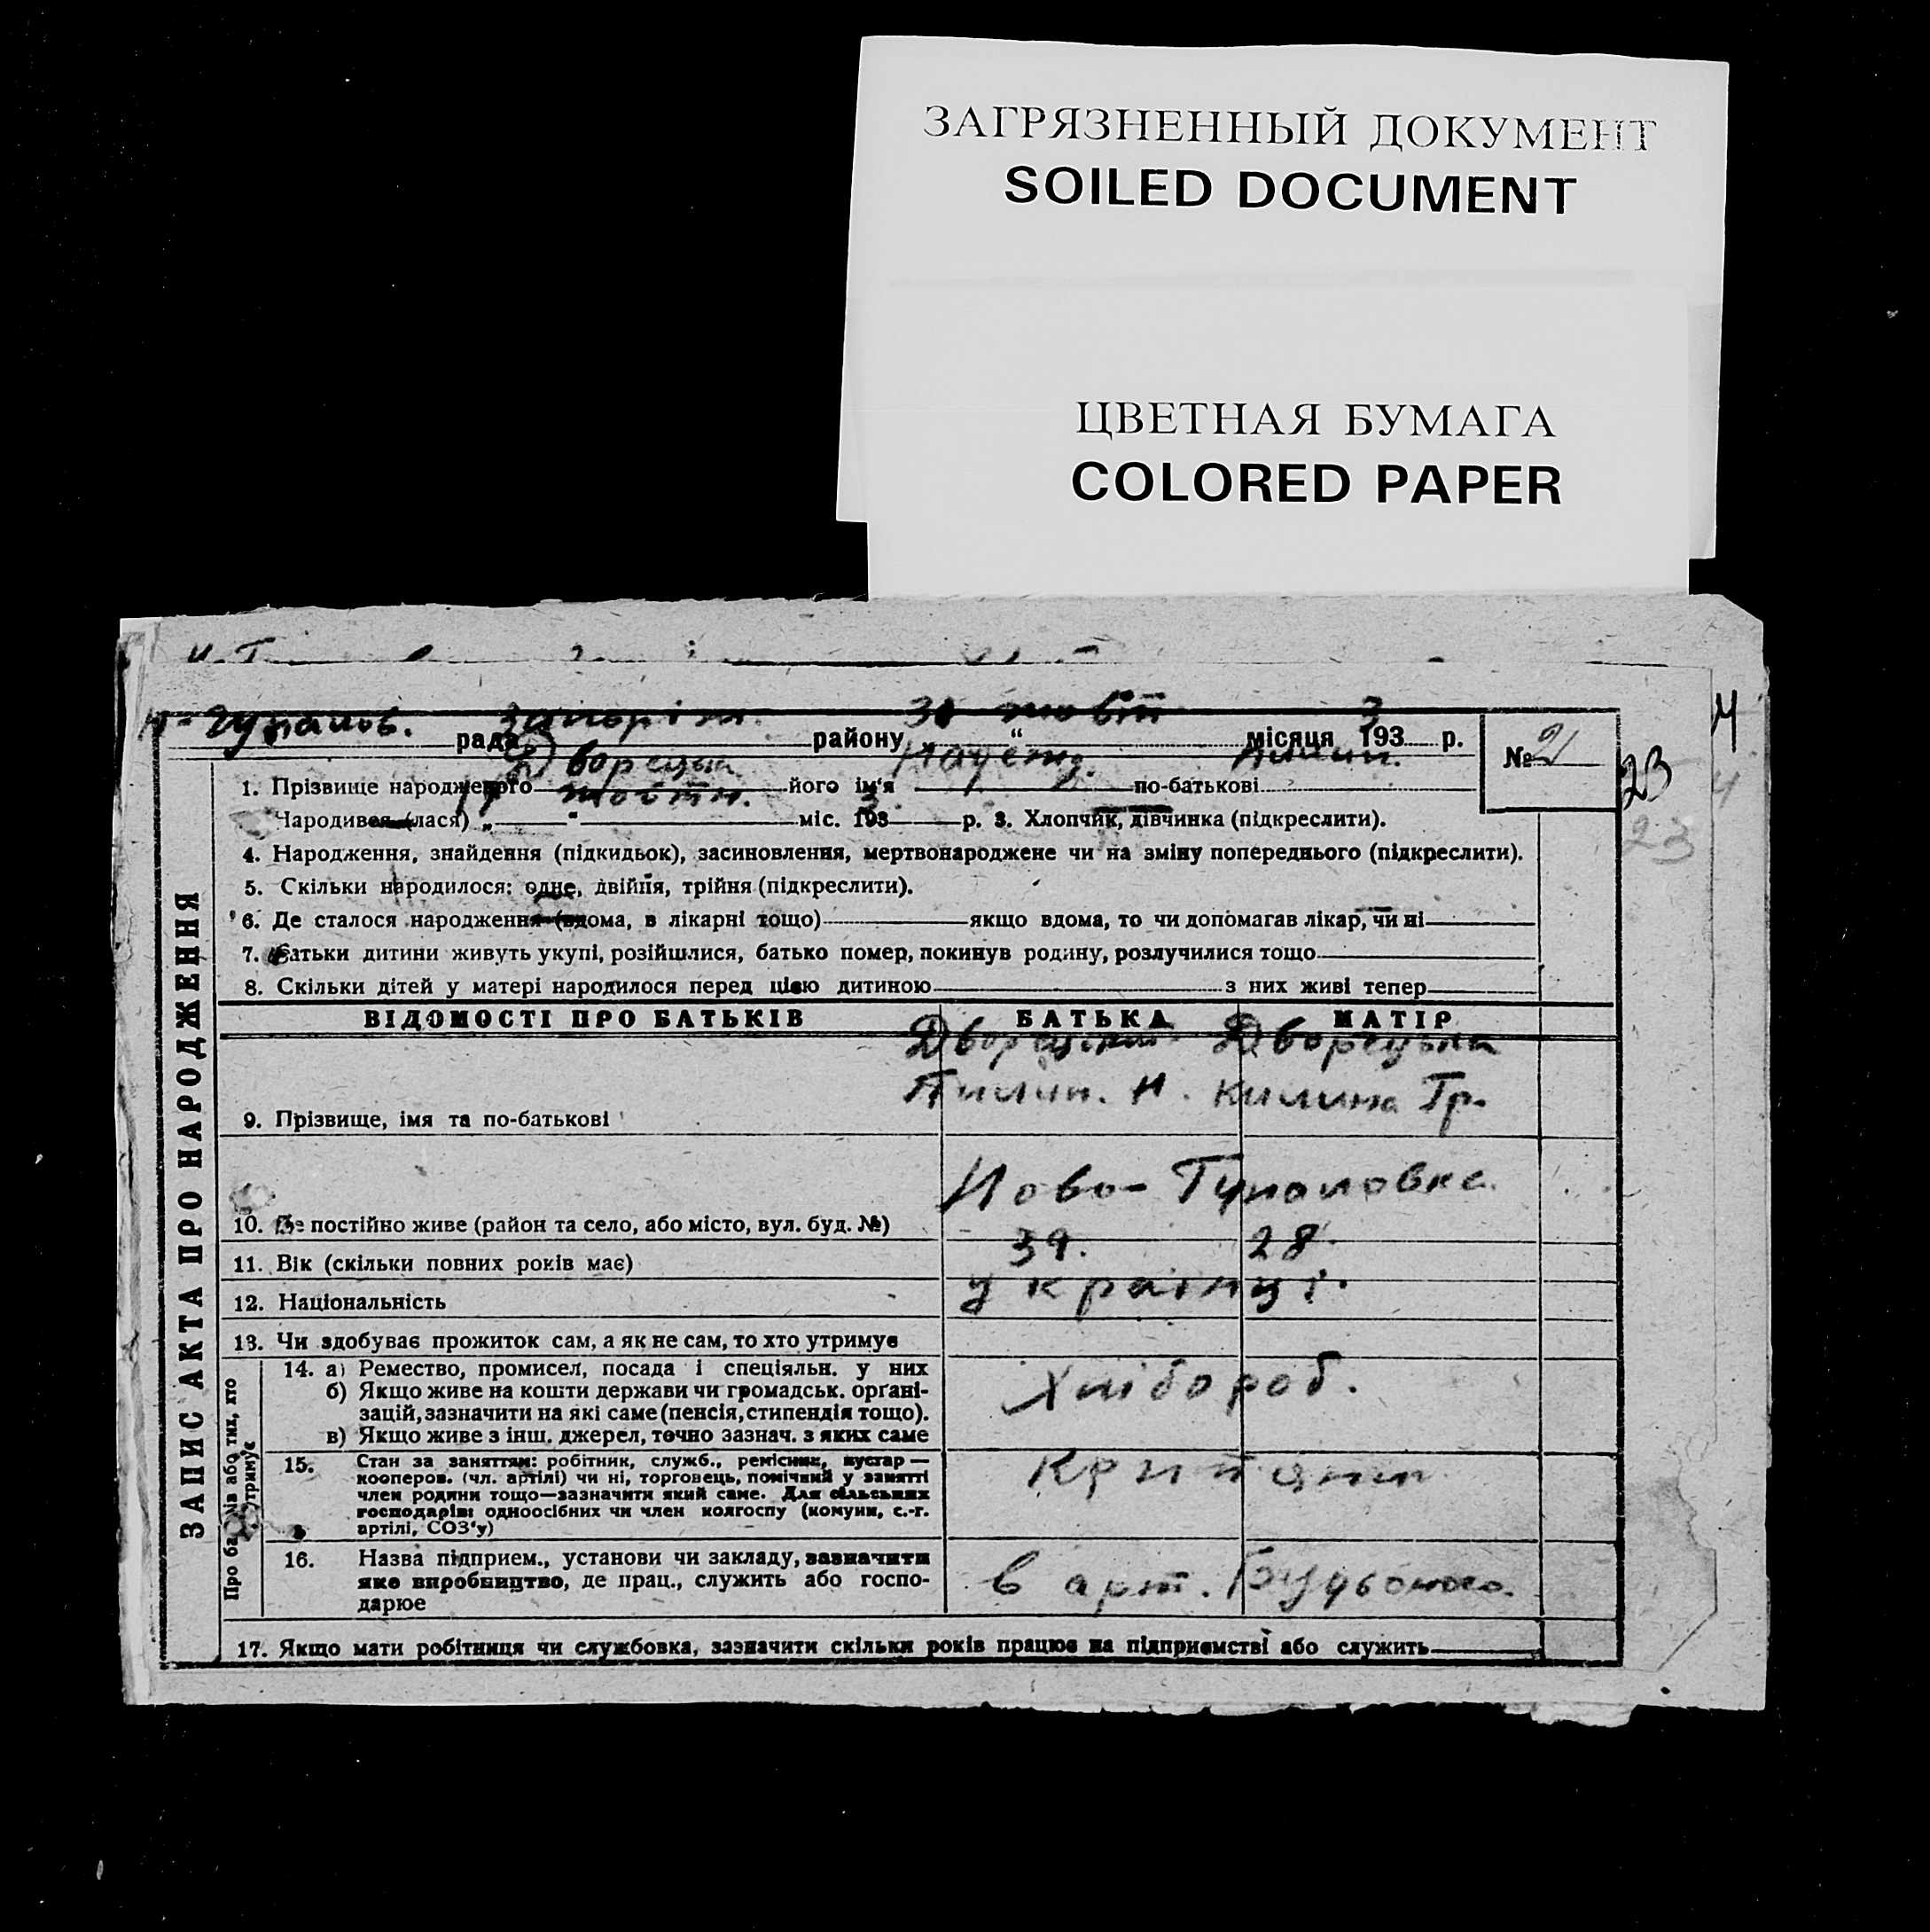 ЗАГРЯЗНЕННЫЙ ДОКУМЕНТ
SOILED DOCUMENT
ЦВЕТНАЯ БУМАГА
COLORED PAPER
рада району „ “ місяця 193 3 р.
№ 21
23
4
23
1. Прізвище народженого Дворецька його ім'я по-батькові
Народився (лася) „ “ міс. 193 3 р. 3. Хлопчик, дівчинка (підкреслити).
4. Народження, знайдення (підкидьок), засиновлення, мертвонароджене чи на зміну попереднього (підкреслити).
5. Скільки народилося: одне, двійня, трійня (підкреслити).
6. Де сталося народження (вдома, в лікарні тощо) якщо вдома, то чи допомагав лікар, чи ні
7. Батьки дитини живуть укупі, розійшлися, батько помер, покинув родину, розлучилися тощо
8. Скільки дітей у матері народилося перед цією дитиною з них живі тепер
ЗАПИС АКТА ПРО НАРОДЖЕННЯ
ВІДОМОСТІ ПРО БАТЬКІВ БАТЬКА МАТІР
Дворецький Дворецька
Пилип. Н. Килина Гр.
9. Прізвище, імя та по-батькові
Ново-Гупаловка
10. Де постійно живе (район та село, або місто, вул. буд. №)
11. Вік (скільки повних років має) 39. 28.
12. Національність українці.
13. Чи здобуває прожиток сам, а як не сам, то хто утримує
Про батьків або тих, хто утримує
14. а) Ремество, промисел, посада і спеціяльн. у них
б) Якщо живе на кошти держави чи громадськ. органі-
зацій, зазначити на які саме (пенсія, стипендія тощо).
в) Якщо живе з інш. джерел, точно зазнач. з яких саме
Хлібороб.
15. Стан за заняттям: робітник, служб., ремісник, кустар—
кооперов. (чл. артілі) чи ні, торговець, помічний у занятті
член родини тощо—зазначити який саме. Для сільських
господарів: одноосібних чи член колгоспу (комуни, с.-г.
артілі, СОЗ'у)
16. Назва підприєм., установи чи закладу, зазначити
яке виробництво, де прац., служить або госпо-
дарює
в арт. Будьоного.
17. Якщо мати робітниця чи службовка, зазначити скільки років працює на підприємстві або служить